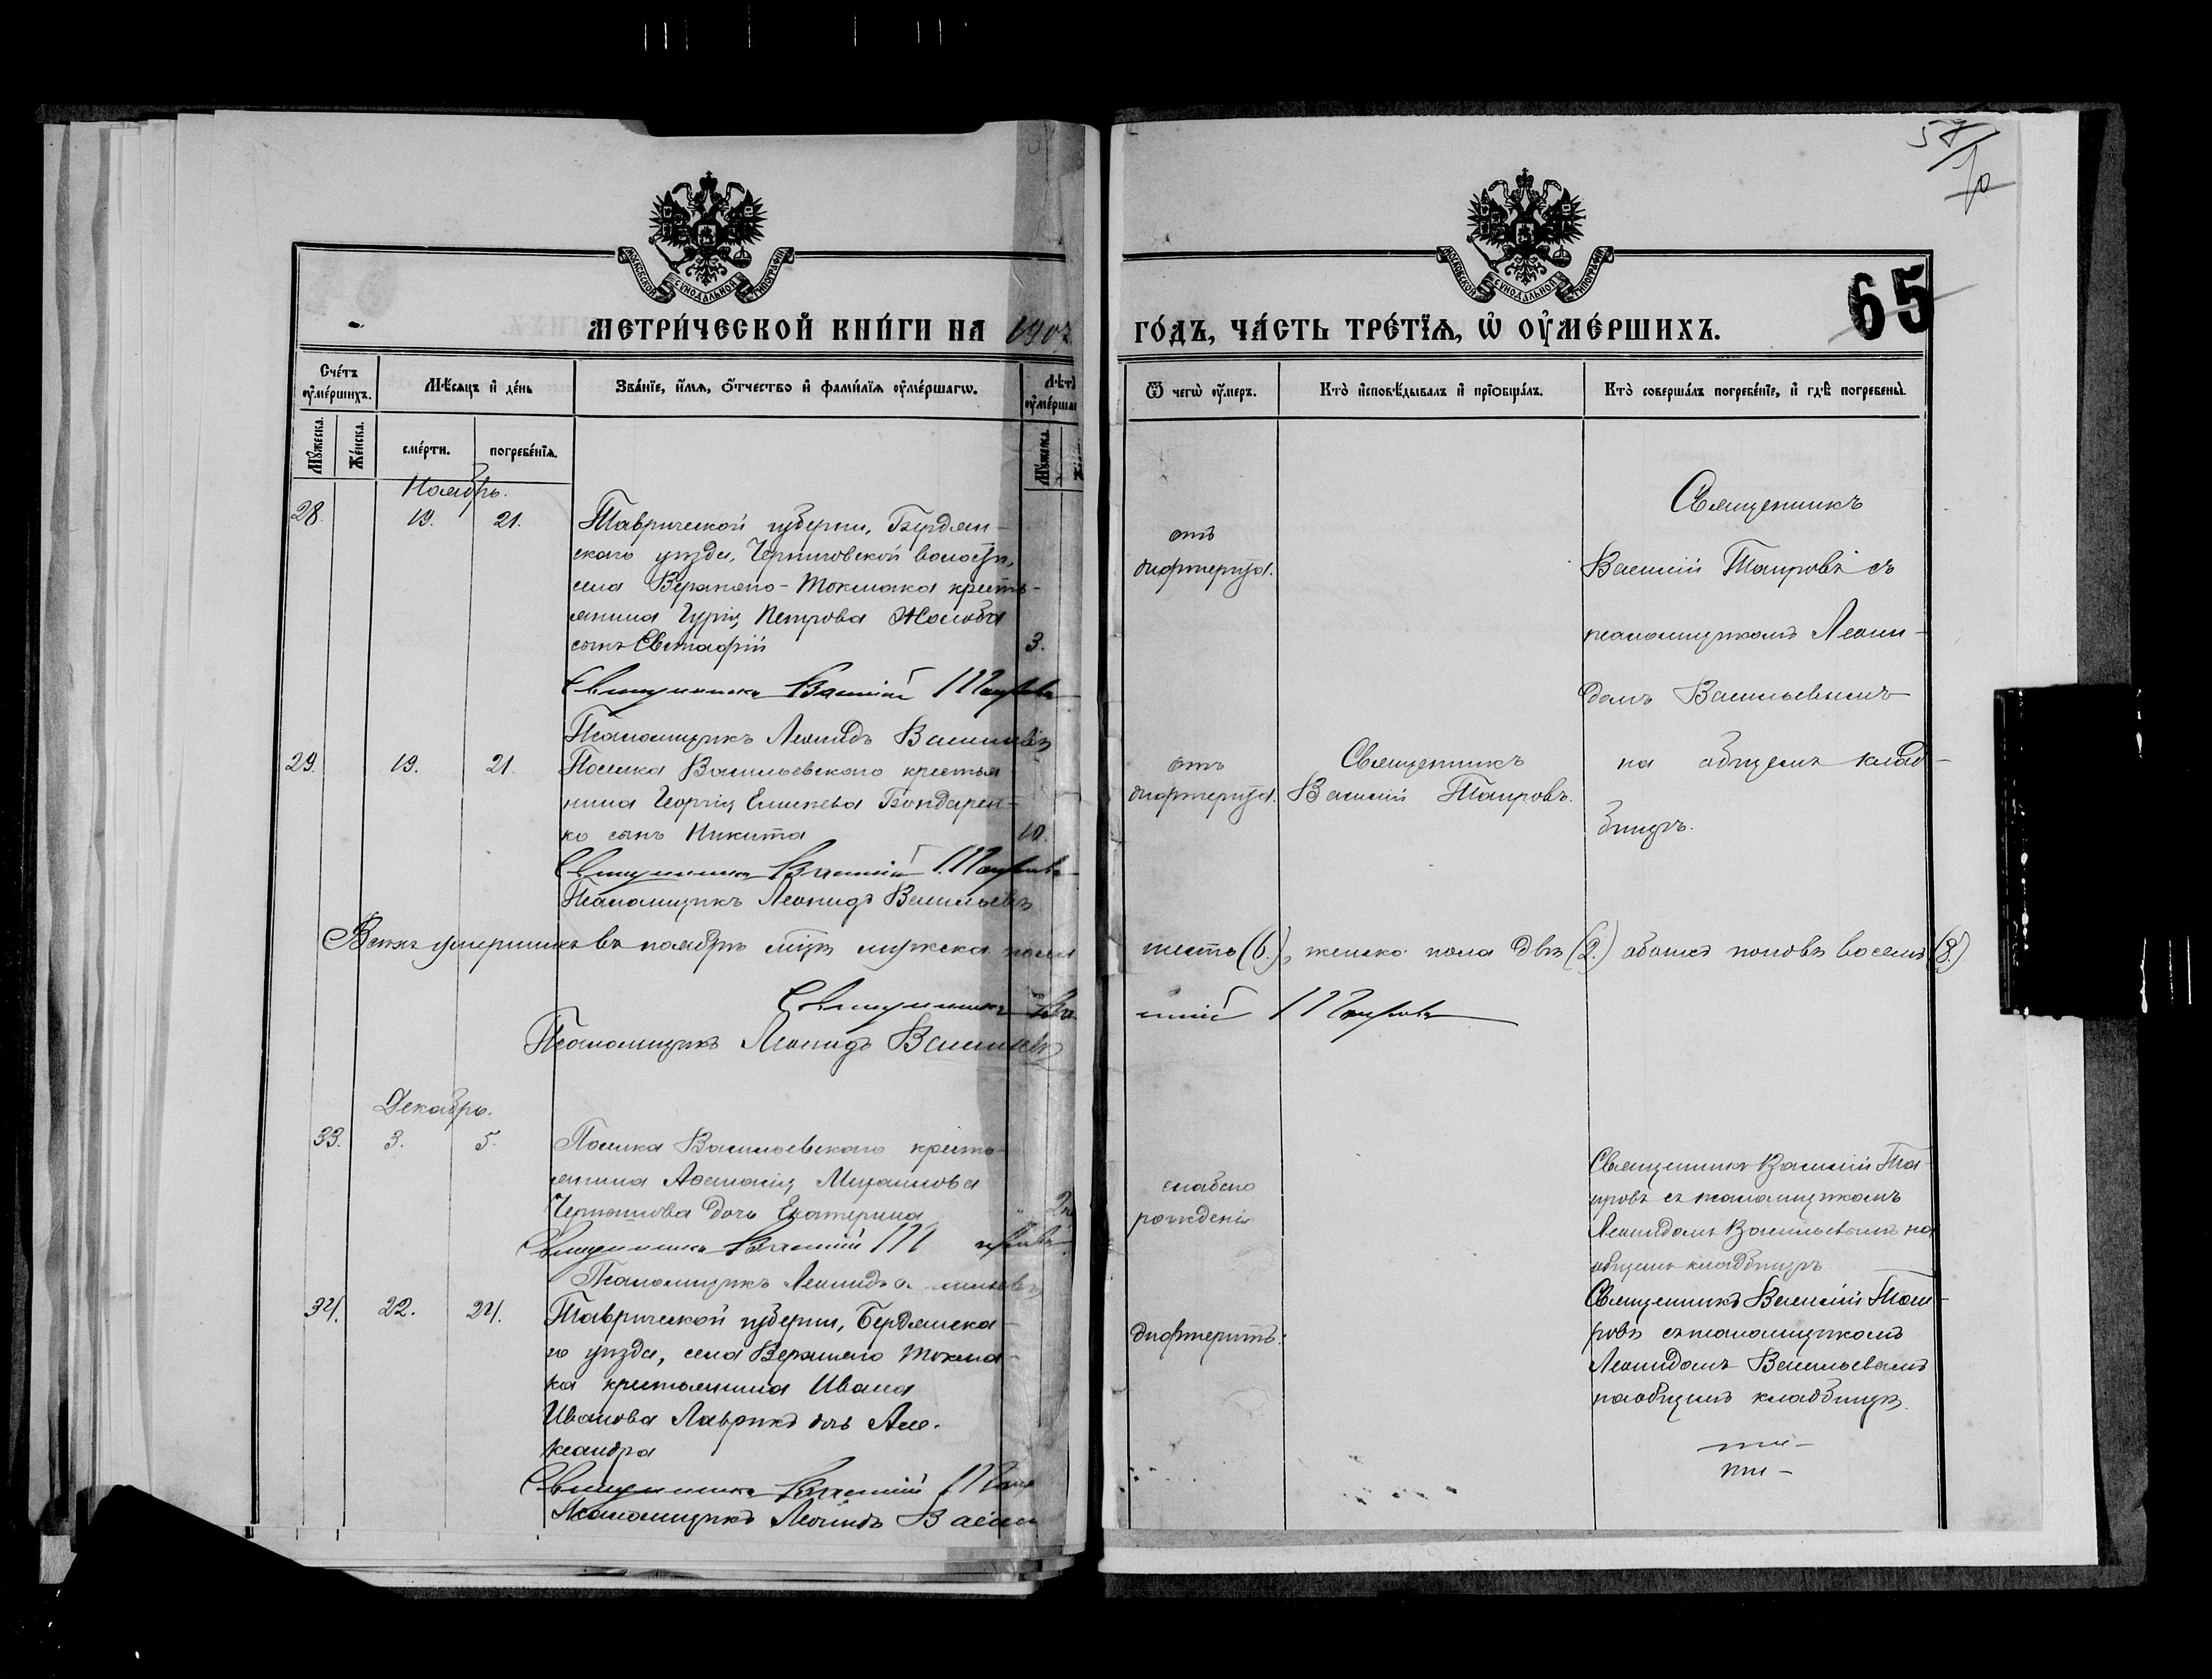 57
10
65
МОСКОВСКОЙ СѴНОДАЛЬНОЙ ТИПОГРАФІИ
МОСКОВСКОЙ СѴНОДАЛЬНОЙ ТИПОГРАФІИ
МЕТРИ́ЧЕСКОЙ КНИ́ГИ НА 1907 ГО́ДЪ, ЧА́СТЬ ТРЕ́ТІѦ, Ѡ҆ ОУ҆МЕ́РШИХЪ.
Сче́тъ оу҆ме́ршихъ.
Мѣ́сяцъ и҆ де́нь
Зва́нїе, и҆́мѧ, ѻ҆́тчество и҆ фамилїѧ оу҆ме́ршагѡ.
Лѣт
оу҆ме́рша
Ѿ чегѡ̀ оу҆́меръ.
Кто̀ и҆сповѣ́дывалъ и҆ прїѡбща́лъ.
Кто̀ соверша́лъ погребе́нїе, и҆ гдѣ̀ погребены̀.
Мꙋ́жеска.
Же́нска.
сме́рти.
погребе́нїѧ.
Мꙋ́жеска.
Ноябрь.
28. 19. 21. Таврической губерніи, Бердян-
скаго уѣзда, Черниговской волости,
села Верхняго-Токмака кресть-
янина Гурія Петрова Жолоба
сынъ Евстафій 3.
Священникъ Василій Таировъ
Псаломщикъ Леонидъ Васильевъ
отъ
дифтерита.
Священникъ
Василій Таировъ съ
псаломщикомъ Леони-
домъ Васильевымъ
на общемъ клад-
бищѣ.
29. 19. 21. Поселка Васильевскаго крестья
нина Георгія Бондарен-
ко сынъ Никита 10.
Священникъ Василій Таировъ
Псаломщикъ Леонидъ Васильевъ
отъ
дифтерита.
Священникъ
Василій Таировъ.
Всѣхъ умершихъ въ ноябрѣ мцѣ мужеска пола шесть (6.), женска пола двѣ (2.) обоихъ половъ восемь (8.)
Священникъ Василій Таировъ
Псаломщикъ Леонидъ Васильевъ
Декабрь.
33. 3. 5. Поселка Васильевскаго кресть
янина Аѳанасія Михайлова
дочь Екатерина
Священникъ Василій
Псаломщикъ Леонидъ
слабаго
рожденія
Священникъ Василій Та
ировъ съ псаломщикомъ
Леонидомъ Васильевымъ на
общемъ кладбищѣ
34. 22. 24. Таврической губерніи, Бердянска-
го уѣзда, села Верхняго Токма-
ка крестьянина Ивана
Иванова Лаврика дочь Але-
ксандра
Священникъ Василій Таи
Псаломщикъ Леонидъ Васил
дифтеритъ.
Священникъ Василій Таи-
ровъ съ псаломщикомъ
Леонидомъ Васильевымъ
на общемъ кладбищѣ.